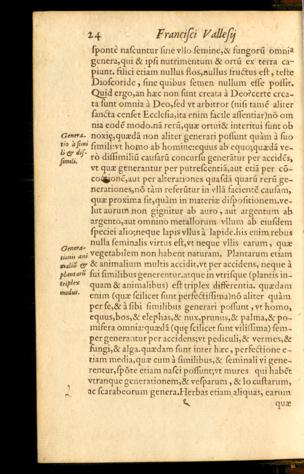 24 Francisci Vallesij
sponte nascuntur sine vllo semine, & fungorũ omnia
genera, qui & ipsi nutrimentum & ortũ ex terra ca-
piunt. filici etiam nullus flos, nullus fructus est, teste
Dioscoride, sine quibus semen nullum esse potest.
Quid ergo, an hæc non sunt creata à Deo? certe crea-
ta sunt omnia à Deo, sed vt arbitror (nisi tamẽ aliter
sancta censet Ecclesia, ita enim facile assentiar) nõ om
nia eodẽ modo. nã rerũ, quæ ortui & interitui sunt ob
Genera- noxiæ, quædã non aliter generari possunt quàm à suo
tio à simi simili: vt homo ab homine: equus ab equo; quædã ve-
li & dis- rò dissimiliũ causarũ concursu generãtur per accidẽs,
similis. vt quæ generantur per putrefactionẽ, aut etiã per cõ-
coctionẽ, aut per alterationes quasdã quarũ rerũ ge-
nerationes, nõ tàm referũtur in vllã facientẽ causam,
quæ proxima sit, quàm in materiæ dispositionem. ve-
lut aurum non gignitur ab auro, aut argentum ab
argento, aut omnino metallorum vllum ab eiusdem
speciei alio; neque lapis vllus à lapide. his enim rebus
nulla seminalis virtus est, vt neque vllis earum, quæ
Genera- vegetabilem non habent naturam. Plantarum etiam
tionis ani & animalium multis accidit, vt per accidens, neque à
maliũ & sui similibus generentur. atque in vtrisque (plantis in-
plantarũ quam & animalibus) est triplex differentia. quædam
triplex enim (quæ scilicet sunt perfectissima) nõ aliter quàm
modus. per se, & à sibi similibus generari possunt, vt homo,
equus, bos, & elephas, & nux, prunus, & palma, & po-
mifera omnia: quædã (quę scilicet sunt vilissima) sem-
per generantur per accidens; vt pediculi, & vermes, &
fungi, & alga. quædam sunt inter hæc, perfectione e-
tiam media, quæ cum à similibus, & seminali vi gene-
rentur, spõte etiam nasci possunt; vt mures qui habẽt
vtranque generationem, & vesparum, & locustarum,
ac scarabeorum genera. Herbas etiam aliquas, earum
quæ